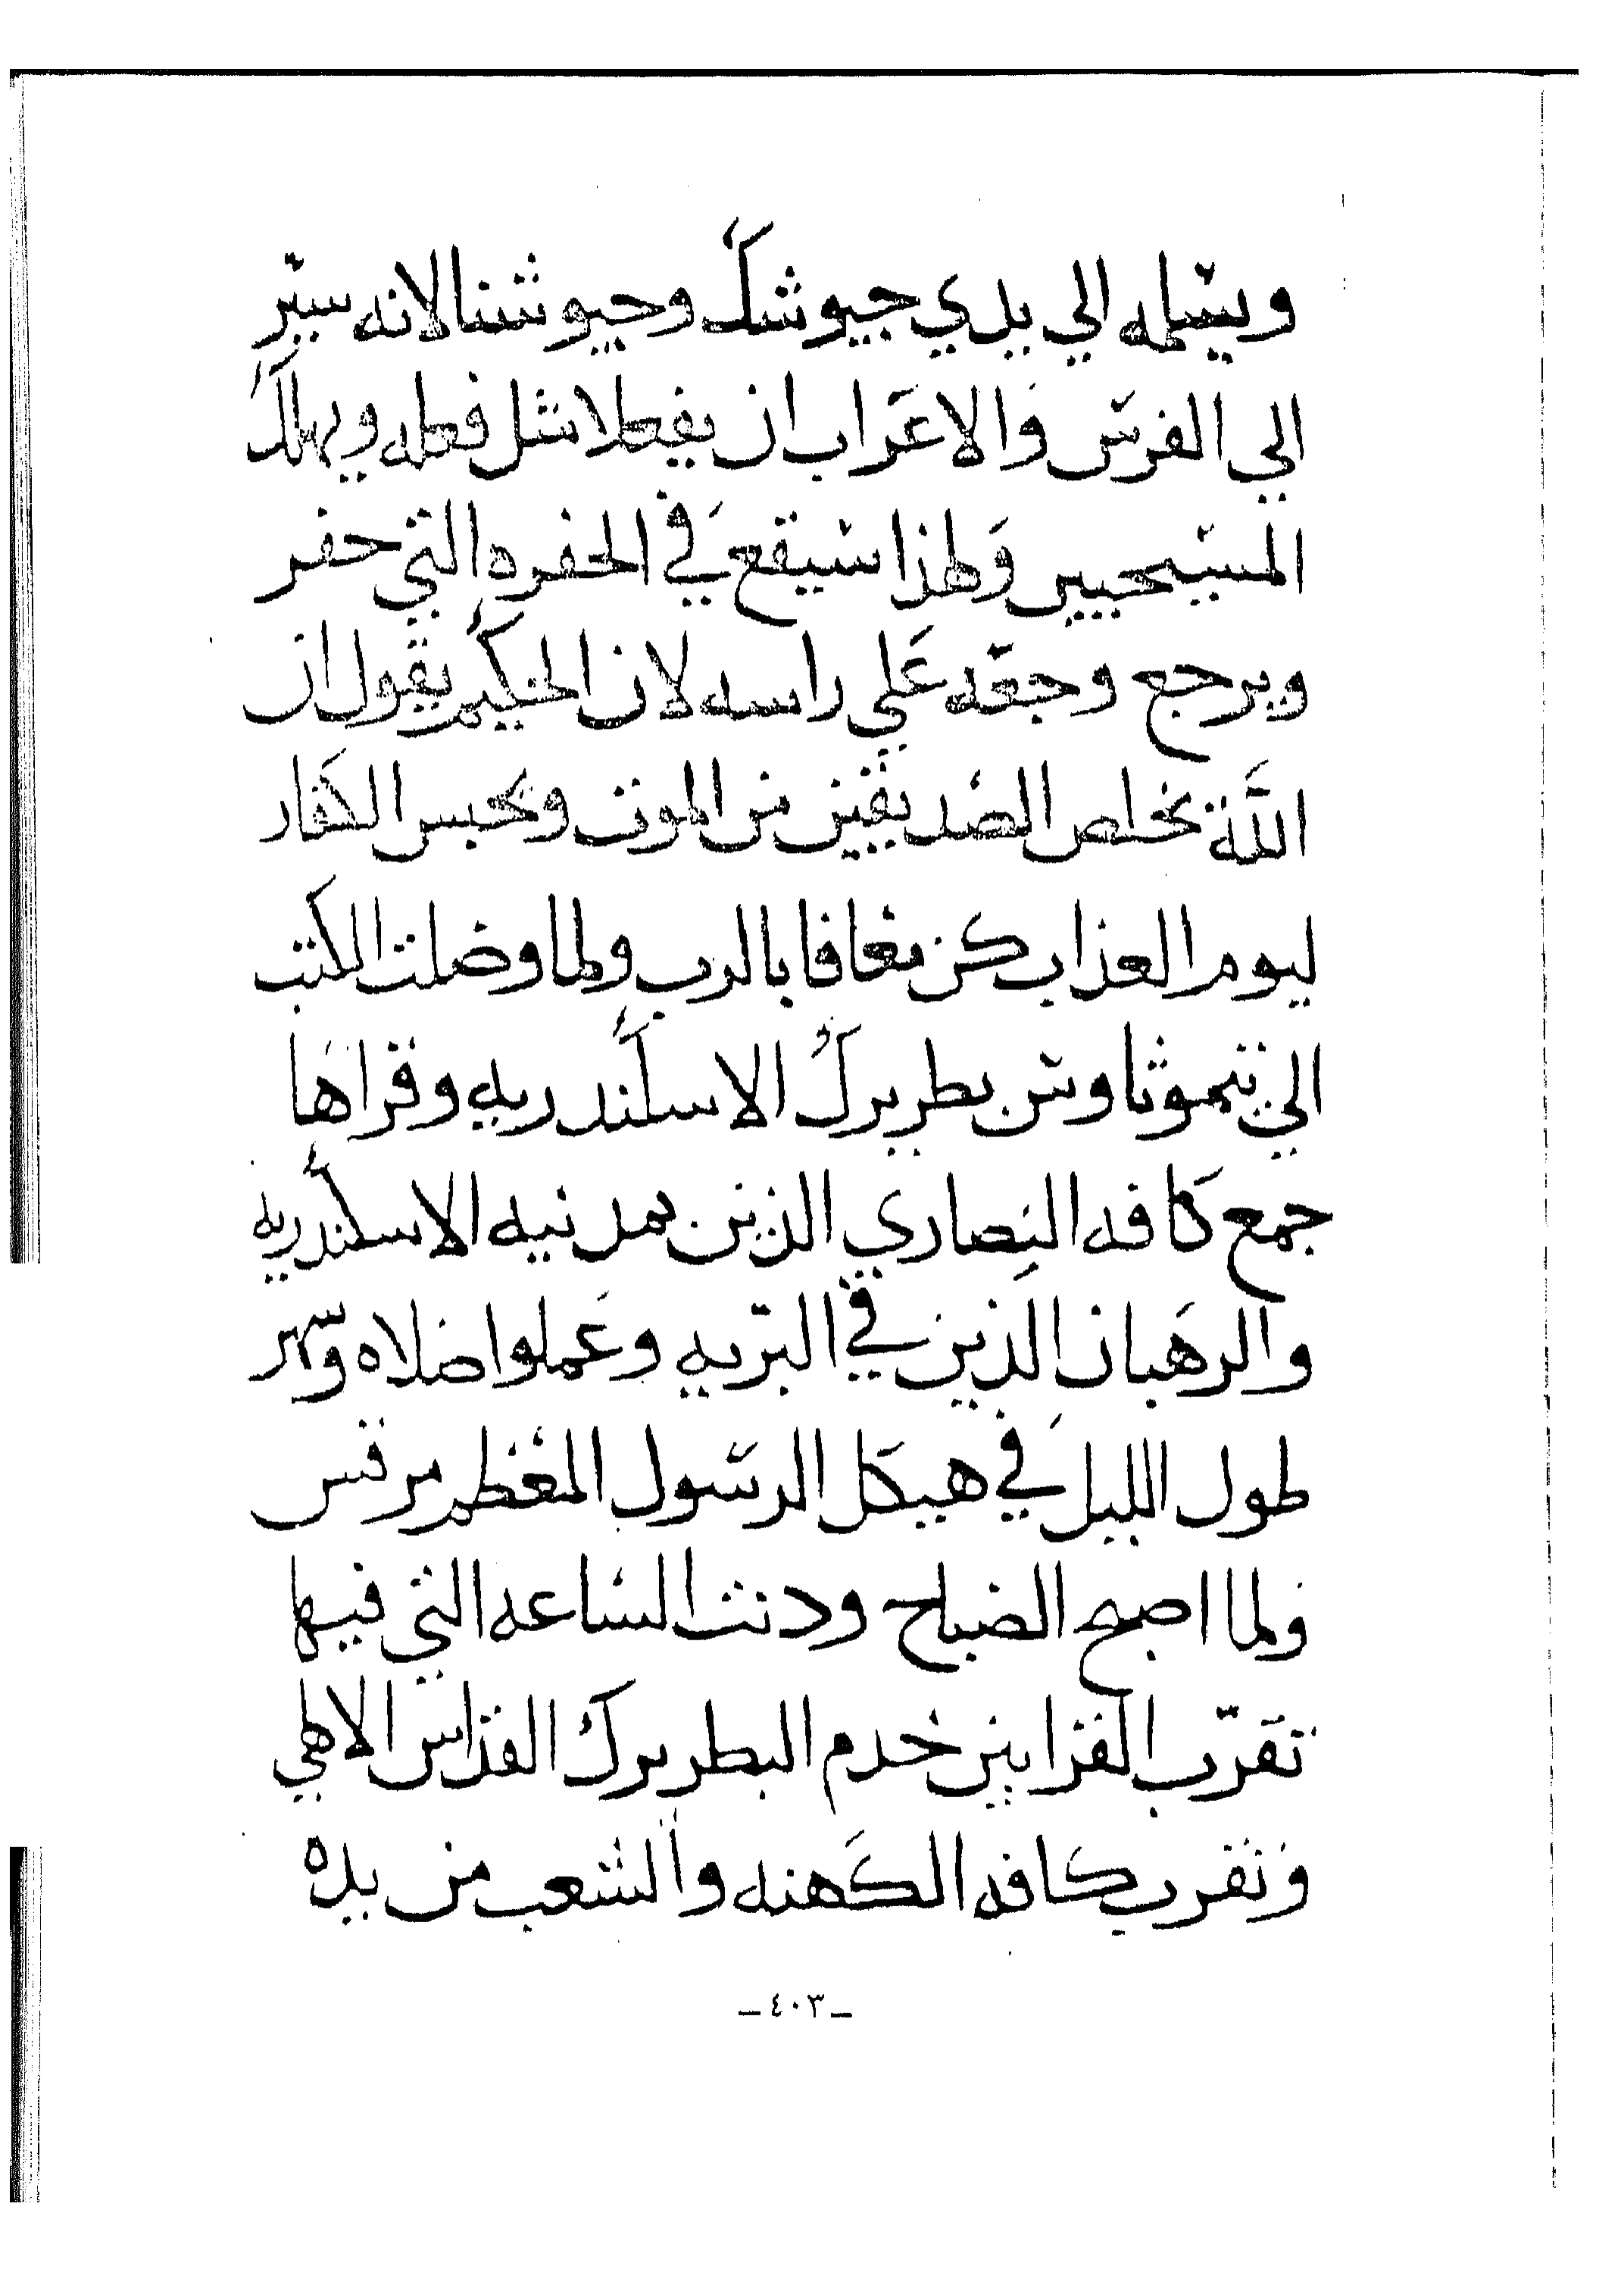 ويسلمه الي يدي جيوشك وجيوشنا لانه سيّر
الي الفرس والاعراب ان يفعلا مثل فعله ويهلك
المسيحيين ولهذا سيقع في الحفره التي حفر
ويرجع وجعه علي راسه لان الحكيم يقول ان
اللّه يخلص الصديقين من الموت ويحبس الكفار
ليوم العذاب كن معافا بالرب ولما وصلت الكتب
الي تيموثاوس بطريرك الاسكندريه وقراها
جمع كافه النصاري الذين بمدنيه الاسكندريه
والرهبان الذين في البريه وعملوا صلاه وسهر
طول الليل في هيكل الرسول المعظم مرقس
ولما اصبح الصباح ودنت الساعه التي فيها
تقرّب القرابين خدم البطريرك القداس الالهي
وتقرب كافه الكهنه والشعب من يده
ـ٤٠٣ـ